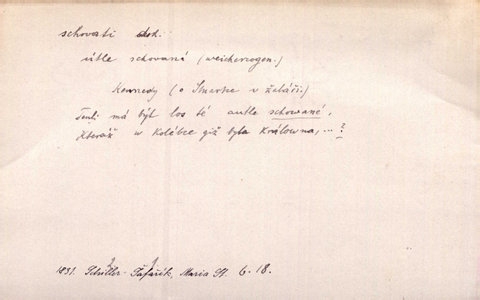 schovati dok.
útle schovaná (weicherzogen.)
Kennedy (o Stuartce v žaláři.)
Tenli má býť los té autle schované,
Kteráž w kolébce giž byla Králowna,...?
1831. Schiller-Šafařík, Maria St. 6. 18.